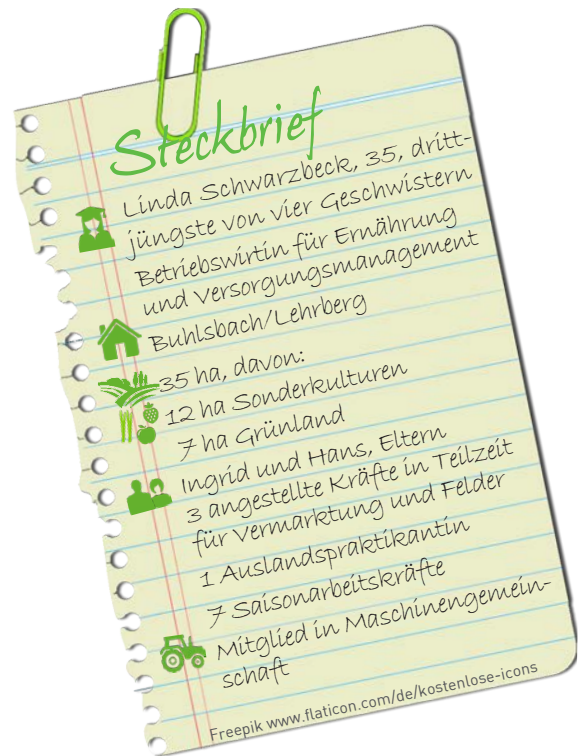 Steckbrief
Linda Schwarzbeck, 35, dritt-
jüngste von vier Geschwistern
Betriebswirtin für Ernährung
und Versorgungsmanagement
Buhlsbach/Lehrberg
35 ha, davon:
12 ha Sonderkulturen
7 ha Grünland
Ingrid und Hans, Eltern
3 angestellte Kräfte in Teilzeit
für Vermarktung und Felder
1 Auslandspraktikantin
7 Saisonarbeitskräfte
Mitglied in Maschinengemein-
schaft
Freepik www.flaticon.com/de/kostenlose-icons